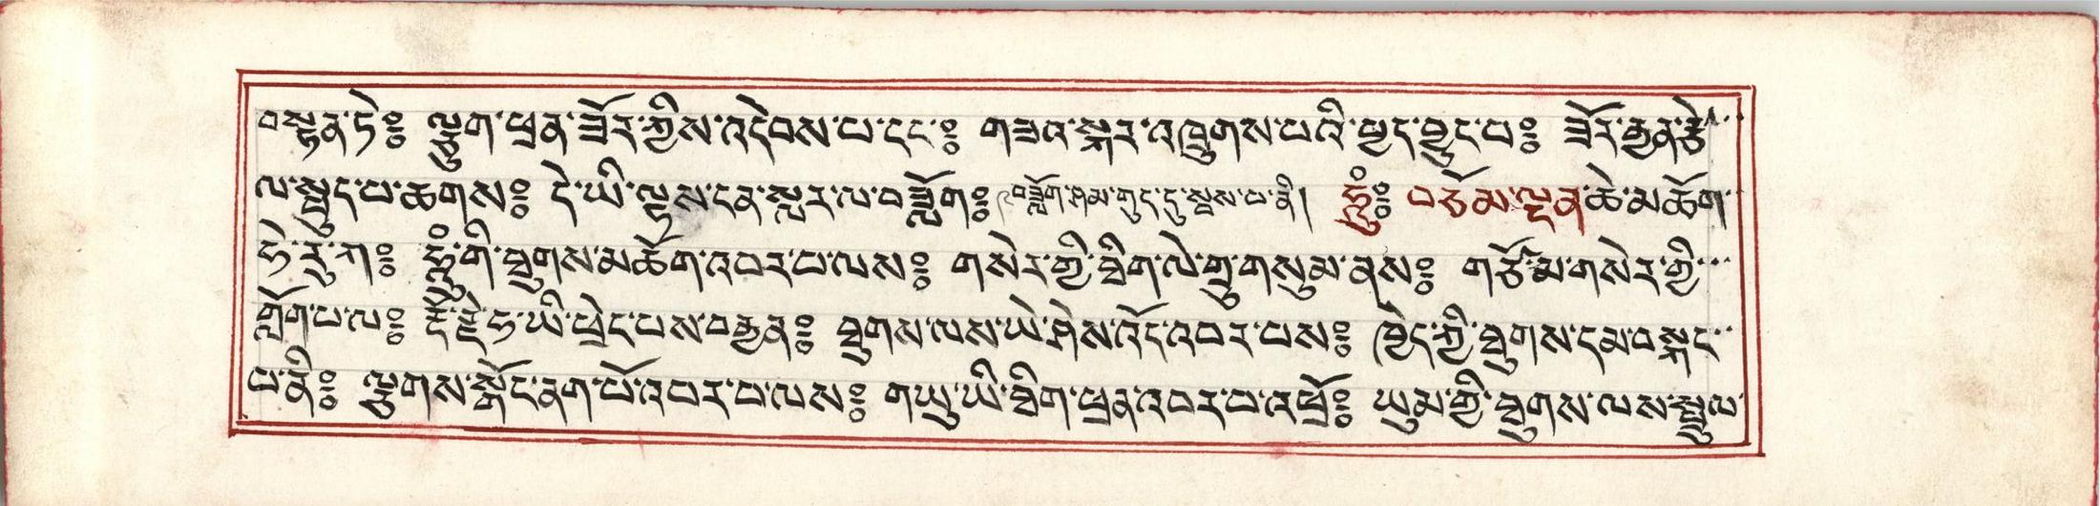 བསྟན་ཏེ༔ ལྕུག་ཕྲན་ཟོར་གྱིས་འདེབས་པ་དང་༔ གཟའ་སྐར་འཁྲུགས་པའི་བྱད་བྱུང་བ༔ ཟོར་རྒྱན་རྩེ
ལ་སྤུད་པ་ཆགས༔ དེ་ཡི་ལྟས་ངན་སླར་ལ་བཟློག༔ བཟློག་ཤམ་གུད་དུ་སྦས་པ་ནི། ཧཱུྃ༔ བཅོམ་ལྡན་ཆེ་མཆོག
ཧེ་རུ་ཀ༔ ཧཱུྃ་གི་ཐུགས་མཆོག་འབར་བ་ལས༔ གསེར་གྱི་ཐིག་ལེ་གྲུ་གསུམ་ནས༔ གཙོ་མ་གསེར་གྱི
ཀློག་པ་ལ༔ རྡོ་རྗེ་ཧ་ཡི་ཕྲེང་བས་བརྒྱན༔ ཐུགས་ལས་ཡེ་ཤེས་འོད་འབར་བས༔ ཁྱེད་ཀྱི་ཐུགས་དམ་བསྐང
བ་ནི༔ ལྕགས་སྒོང་ནག་པོ་འབར་བ་ལས༔ གཡུ་ཡི་ཐིག་ཕྲན་འབར་བ་འཕྲོ༔ ཡུམ་གྱི་ཐུགས་ལས་སྤྲུལ